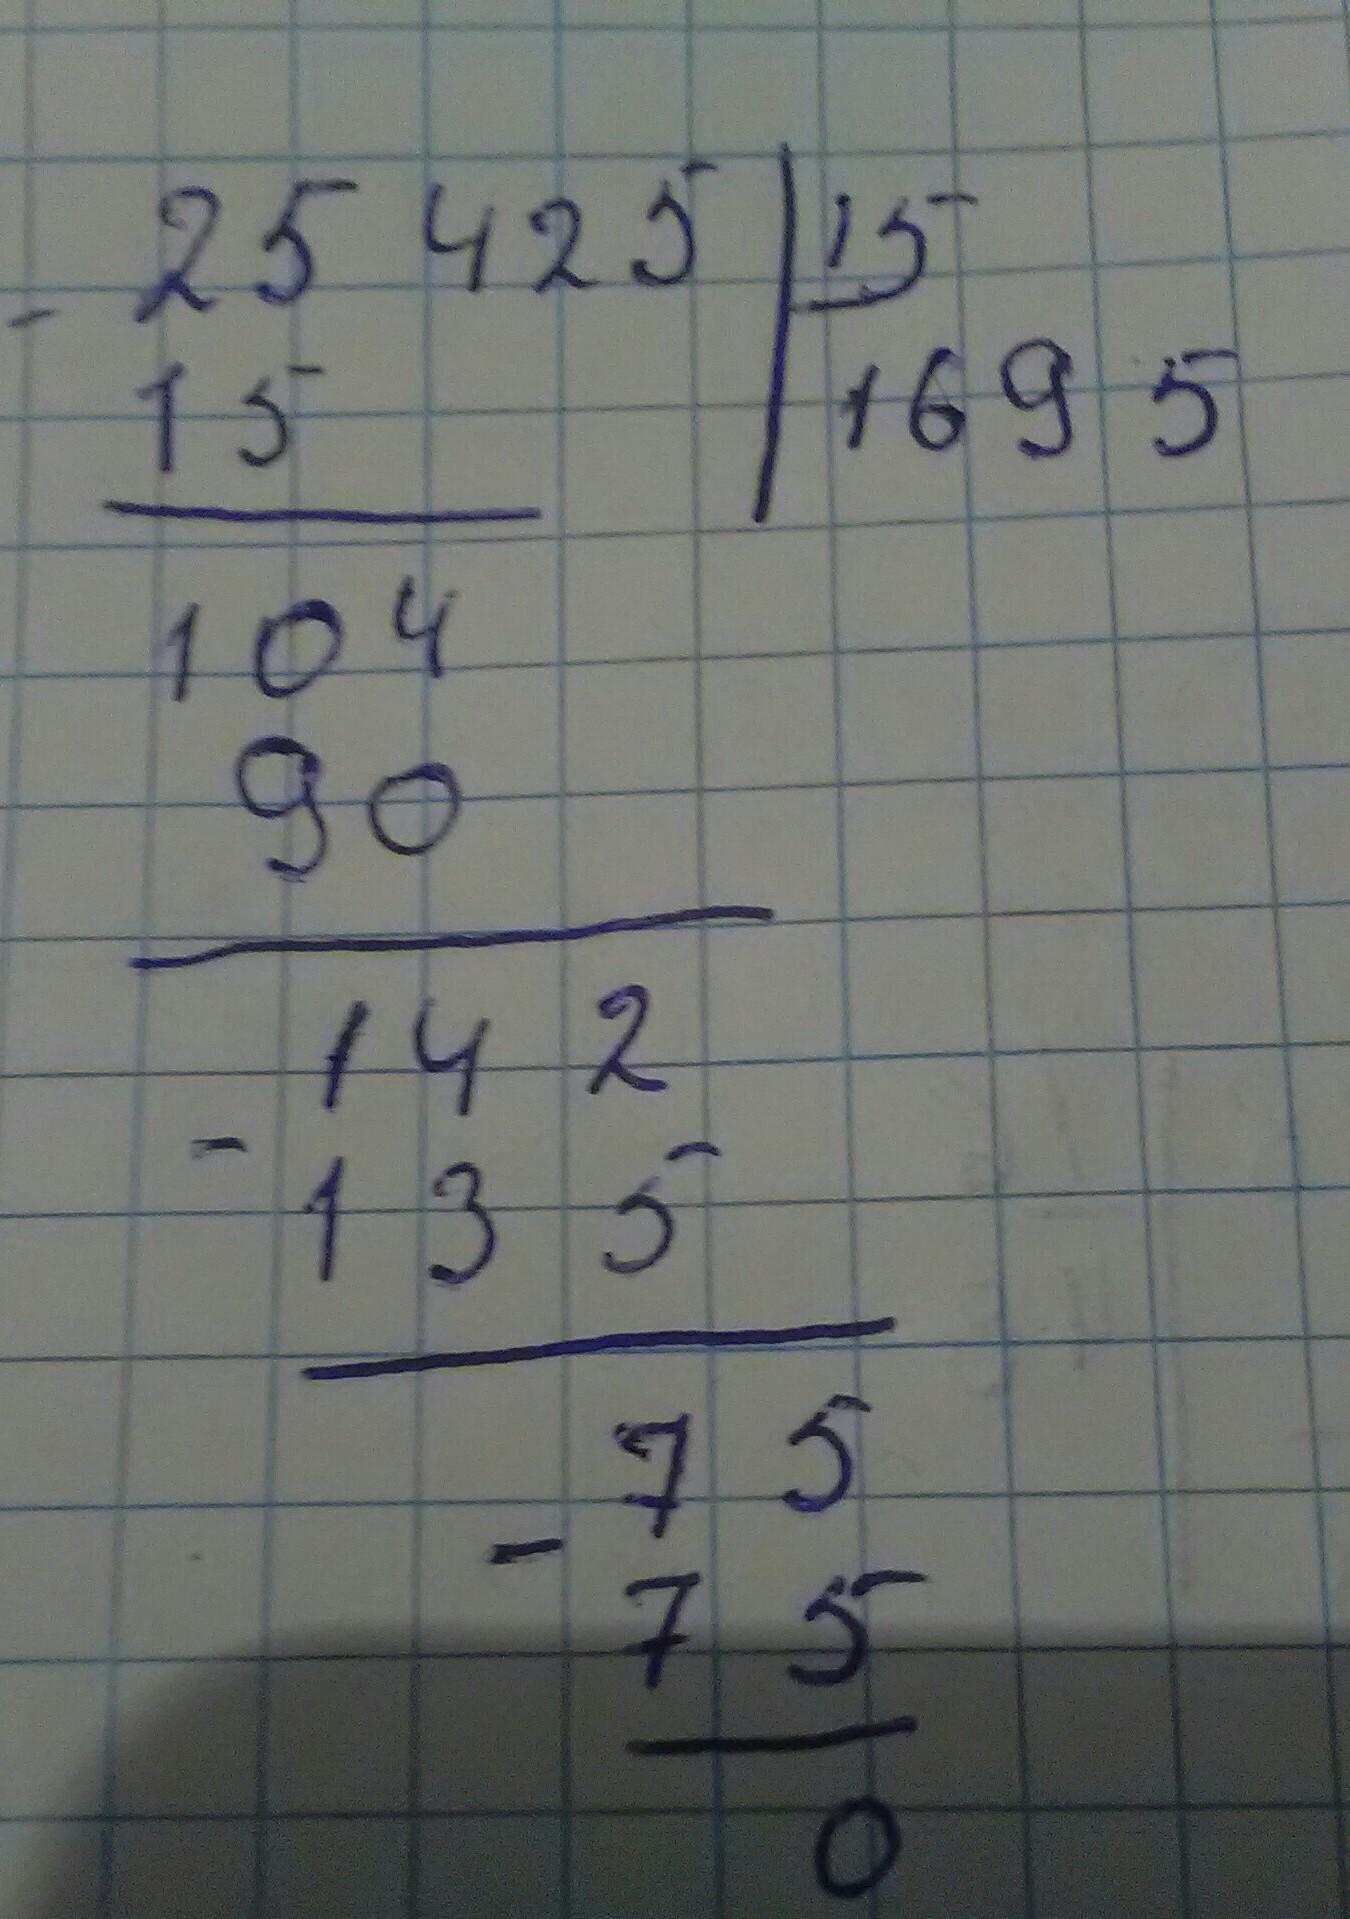 - 25 425 | 15
15 1695
104
90
142
- 135
75
- 75
0